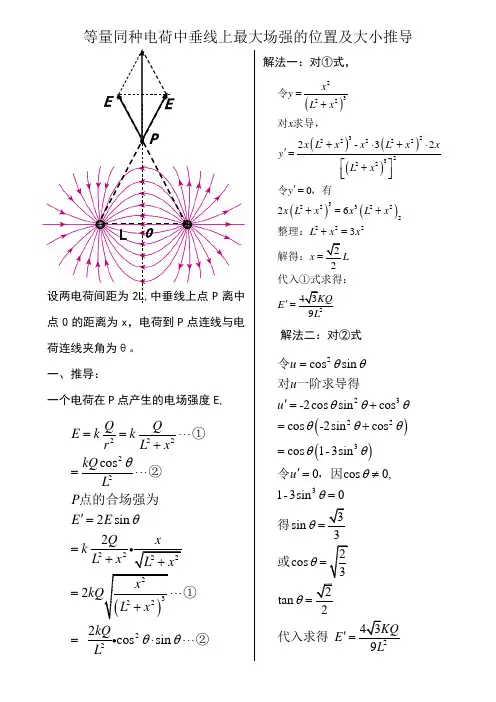 等量同种电荷中垂线上最大场强的位置及大小推导
E E
P
L O
设两电荷间距为 2L,中垂线上点 P 离中
点 O 的距离为 x，电荷到 P 点连线与电
荷连线夹角为θ。
一、推导：
一个电荷在 P 点产生的电场强度 E,
E = k Q/r² = k Q/(L² + x²) ⋯①
= kQcos²θ/L² ⋯②
P点的合场强为
E′ = 2E sinθ
= k 2Q/(L² + x²) • x/√(L² + x²)
= 2kQ√(x²/(L² + x²)³) ⋯①
= 2kQ/L² •cos²θ⋅sinθ ⋯②
解法一：对①式，
令y = x²/(L² + x²)³
对x求导，
y′ = (2x(L² + x²)³ - x²⋅3(L² + x²)²⋅2x)/[(L² + x²)³]²
令y′ = 0，有
2x(L² + x²)³ = 6x³(L² + x²)₂
整理：L² + x² = 3x²
解得：x = √2/2 L
代入①式求得：
E′ = 4√3KQ/9L²
解法二：对②式
令u = cos²θsinθ
对u一阶求导得
u′ = -2cosθsin²θ + cos³θ
= cosθ(-2sin²θ + cos²θ)
= cosθ(1-3sin³θ)
令u′ = 0，因cosθ ≠ 0,
1-3sin³θ = 0
得sinθ = √3/3
或cosθ = √(2/3)
tanθ = √2/2
代入求得 E′ = 4√3KQ/9L²